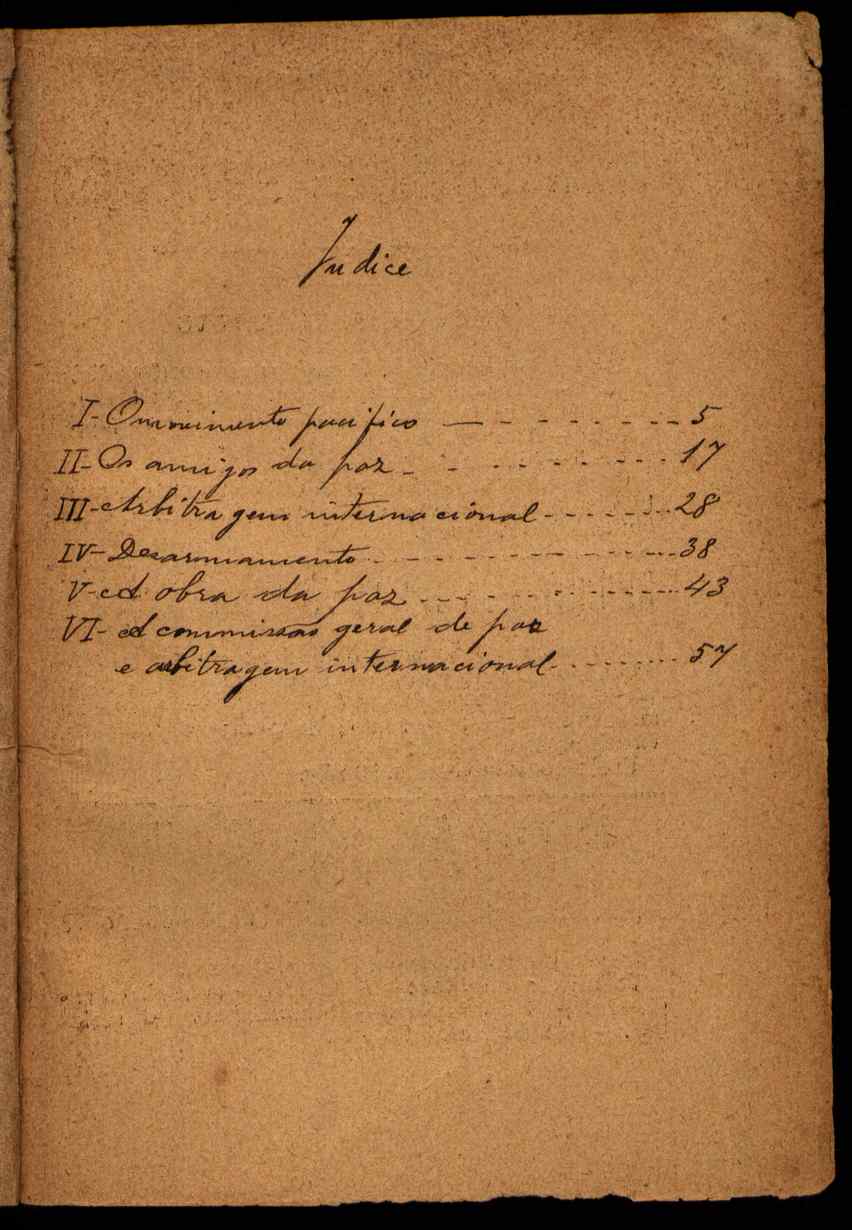 Indice
I - O movimento pacifico — - - - - - - 5
II - Os amigos da paz - - - - - - - 17
III - Arbitragem internacional - - - - - - 28
IV - Desarmamento - - - - - - - 38
V - A obra da paz - - - - - - - 43
VI - A commissão geral de paz
e arbitragem internacional - - - - - - 57